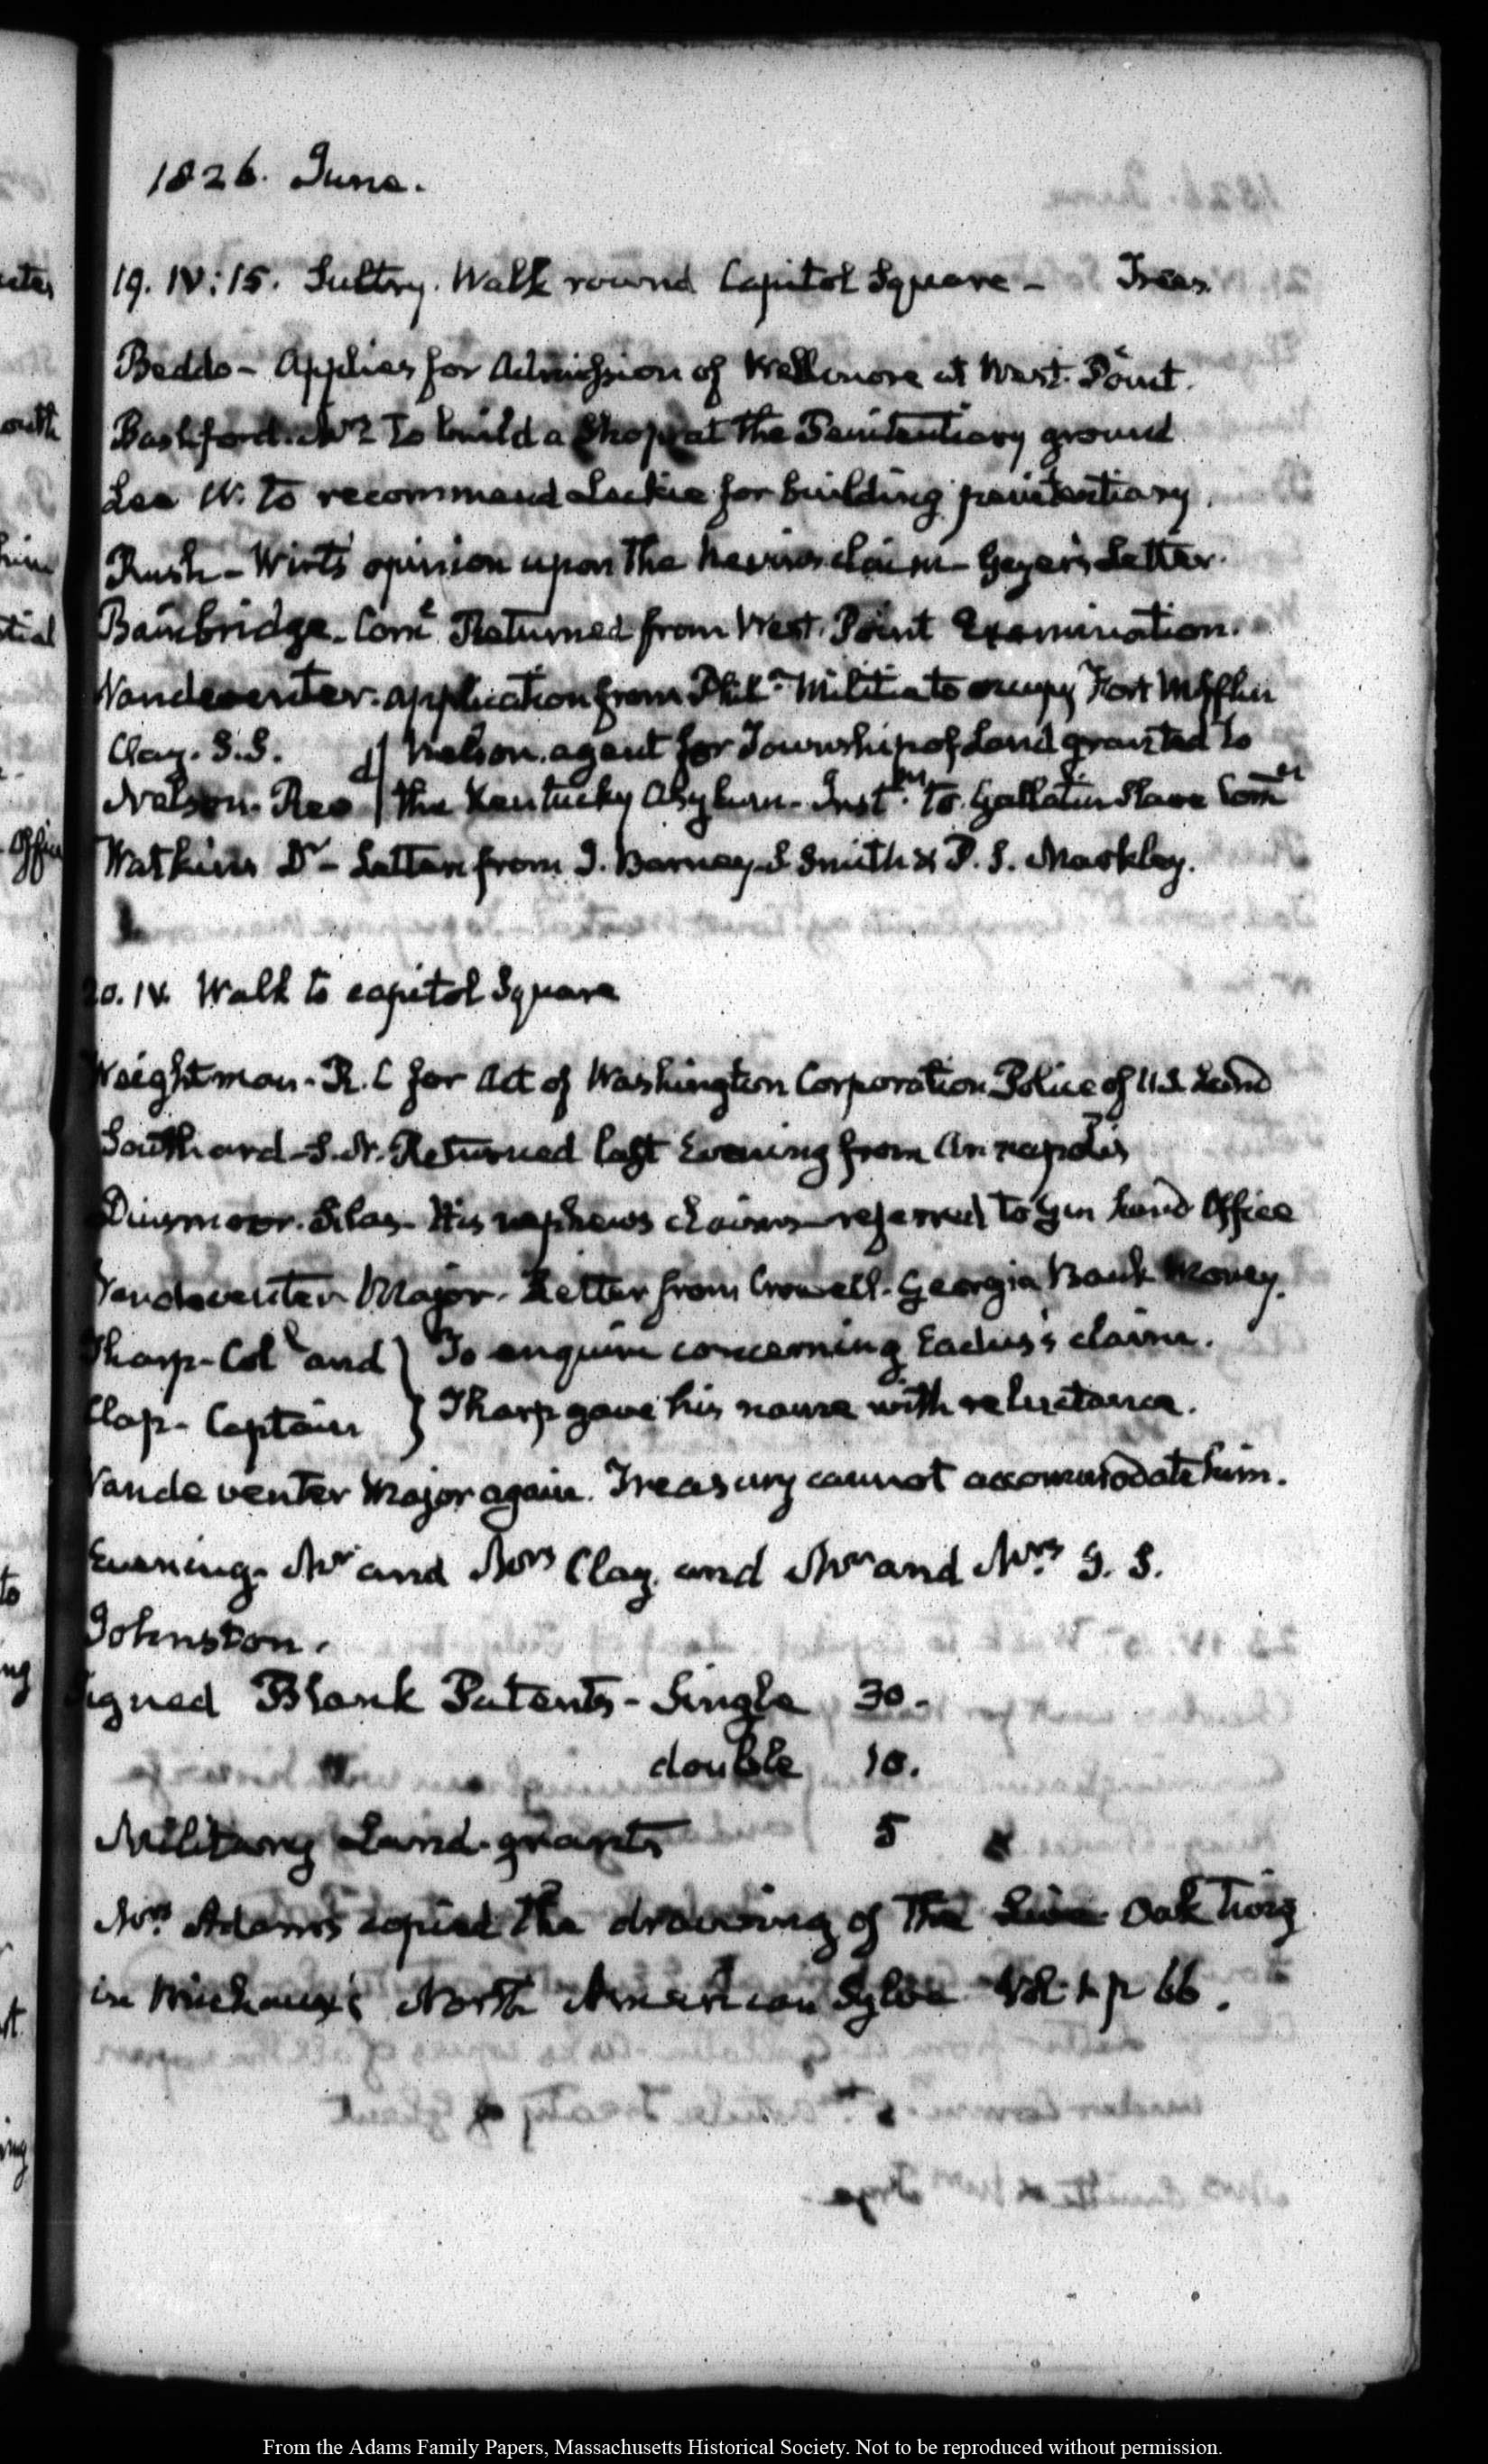 1826. June.
19. IV:15. Sultry. Walk round Capitol Square - Trees
Beddo - Applies for Admission of Wellmore at West-Point.
Bashford. Mr. To build a Shop at the Penitentiary ground
Lee W. to recommend Leckie for building penitentiary.
Rush - Wirt's opinion upon the claim - Geyer's Letter.
Bainbridge. Come Returned from West. Point Examination.
Vandeventer. application from Phila Militia to occupy Fort Mifflin
Clay. S.S. Nelson. agent for Township of Land granted to
Nelson. the Kentucky Asylum. Instns. to Gallatin Slave Comn
Watkins Dr - Letters from J. Barney. S Smith & P. S. Markley.
20. IV. Walk to capitol Square
Weightman. R. C for Act of Washington Corporation. Police of U.S. Land
Southard - S. N. Returned last Evening from Annapolis
Dinsmoor. Silas - His nephews claims - referred to Gen Land Office
Vandeventer Major. Letter from Crowell. Georgia Bank Money.
Tharp - Coll and } To enquire concerning claim.
Clap - Captain } Tharp gave his name with reluctance.
Vandeventer Major again. Treasury cannot accommodate him.
Evening. Mr and Mrs Clay. and Mr and Mrs. J. S.
Johnston.
Signed Blank Patents - Single 30.
double 10.
Military Land-grants 5
Mrs. Adams copied the drawing of the Live Oak twig
in Michaux's North American Sylva Vol. 1 p 66.
From the Adams Family Papers, Massachusetts Historical Society. Not to be reproduced without permission.